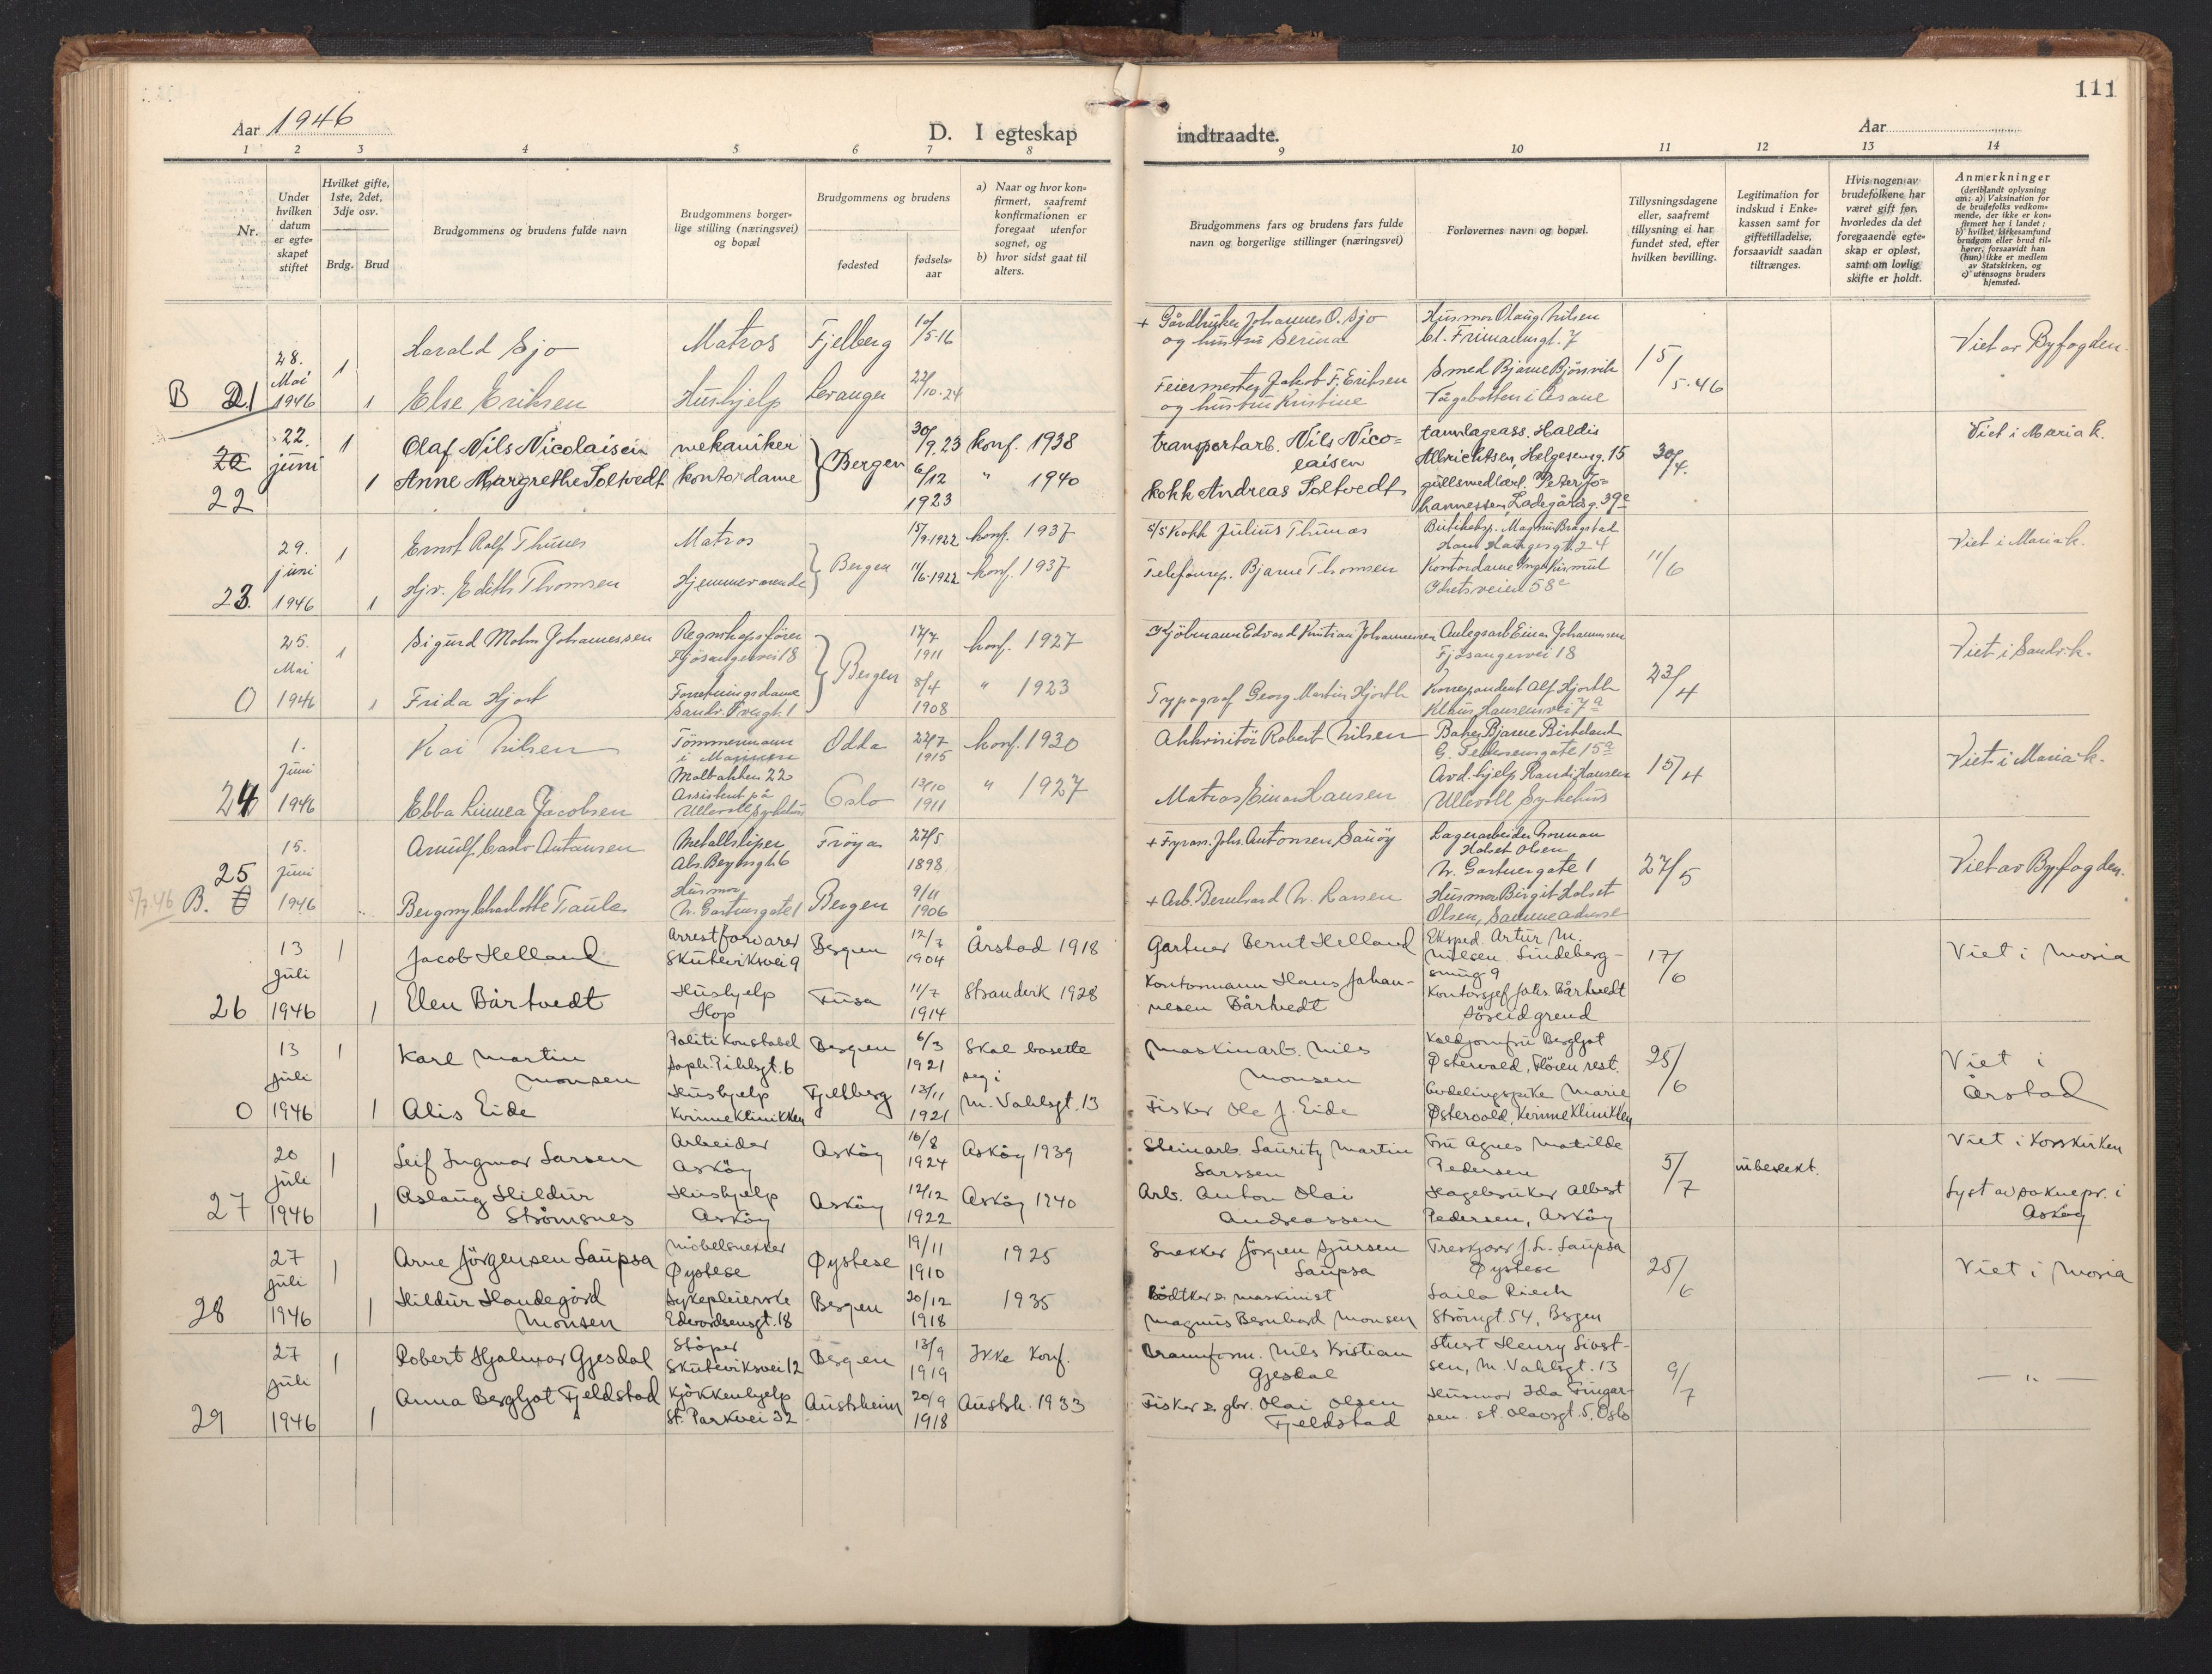 111
Aar 1946
D. I egteskap
indtraadte.
Aar
1 2 3 4 5 6 7 8 9 10 11 12 13 14
Nr.
Under
hvilken
datum
er egte-
skapet
stiftet
Hvilket gifte,
1ste, 2det,
3dje osv.
Brdg. Brud
Brudgommens og brudens fulde navn
Brudgommens borger-
lige stilling (næringsvei)
og bopæl
Brudgommens og brudens
fødested
fødsels-
aar
a) Naar og hvor kon-
firmert, saafremt
konfirmationen er
foregaat utenfor
sognet, og
b) hvor sidst gaat til
alters.
Brudgommens fars og brudens fars fulde
navn og borgerlige stillinger (næringsvei)
Forlovernes navn og bopæl.
Tillysningsdagene
eller, saafremt
tillysning ei har
fundet sted, efter
hvilken bevilling.
Legitimation for
indskud i Enke-
kassen samt for
giftetilladelse,
forsaavidt saadan
tiltrænges.
Hvis nogen av
brudefolkene har
været gift før,
hvorledes da det
foregaaende egte-
skap er opløst,
samt om lovlig
skifte er holdt.
Anmerkninger
(deriblandt oplysning
om: a) Vaksination for
de brudefolks vedkom-
mende, der ikke er kon-
firmert her i landet;
b) hvilket kirkesamfund
brudgom eller brud til-
hører, forsaavidt han
(hun) ikke er medlem
av Statskirken, og
c) utensogns bruders
hjemsted.
B 21
28.
Mai
1946
1
1
Harald Sjo
Else Eriksen
Matros
Hushjelp
Fjelberg
Levanger
10/5-16
22/10-24
+ Gårdbruker Johannes O. Sjo
og hustru Serina
Feiermester Jakob F. Eriksen
og hustru Kristine
Husmor Olaug Nilsen
Cl. Frimannsgt. 7
Smed Bjarne Bjørsvik
i Åsane
15/5-46
Viet av Byfogden.
20
22
22.
juni
1
1
Olaf Nils Nicolaisen
Anne Margrethe Soltvedt
mekaniker
kontordame
Bergen
30/9.23
6/12
1923
konf. 1938
" 1940
transportarb. Nils Nico=
laisen
kokk Andreas Soltvedt
tannlegeass. Haldis
Albrichtsen, Helgeseng. 15
gullsmedlærl. Peter Jo=
hannessen, Ladegårdsg. 39c
30/4.
Viet i Maria k.
23.
29.
juni
1946
1
1
Ernst Ralf Thunes
Hjr. Edith Thomsen
Matros
Hjemmeværende
Bergen
15/9-1922
11/6-1922
konf. 1937
konf. 1937
s/s Kokk Julius Thunes
Telefonrep. Bjarne Thomsen
Butikeksp. Magnus Bragstad
Hans Haugesgt. 24
Kontordame Inga
Idretsveien 58c
11/6
Viet i Mariak.
0
25.
Mai
1946
1
1
Sigurd Mohn Johannessen
Frida Hjort
Regnskapsfører
Fjøsangervei 18
Forretningsdame
Sandv. Tverrgt. 1
Bergen
17/7
1911
8/4
1908
konf. 1927
" 1923
Kjøbmann Edvard Kristian Johannessen
Typograf Georg Martin Hjorth
Anlegsarb Einar Johannessen
Fjøsangervei 18
Korrespondent Alf Hjorth
Klaus Hansensvei 7a
23/4
Viet i Sandv.k.
24
1.
juni
1946
Kai Nilsen
Ebba Linnea Jacobsen
Tømmermann
i Marinen
Maltbakken 22
Assistent på
Ullevoll Sykehus
Odda
Oslo
22/7
1915
13/10
1911
konf. 1930
" 1927
Akkvisitør Robert Nilsen
Matros Einar Hansen
Baker Bjarne Birkeland
G. Pedersensgate 15a
Avd.hjelp Randi Hansen
Ullevoll Sykehus
15/4
Viet i Mariak.
25
5/7.46 B.
15.
juni
1946
Arnulf Carlo Antonsen
Bergny Charlotte Taule
Metallsliper
Husmor
N. Gartnergate 1
Frøya
Bergen
27/5
1898
9/11
1906
+ Fyrass. Johs. Antonsen, Sauøy
+ Arb. Bernhard N. Larsen
Lagerarbeider Norman
Holset Olsen
N. Gartnergate 1
Husmor Birgit Holset
Olsen, Samme adresse
27/5
Viet av Byfogden.
26
13
juli
1946
1
1
Jacob Helland
Elen Bårtvedt
Arrestforvarer
Skuteviksvei 9
Hushjelp
Hop
Bergen
Fusa
12/7
1904
11/7
1914
Årstad 1918
Stranderk 1928
Gartner Bernt Helland
Kontormann Hans Johan-
nesen Bårtvedt
Eksped. Artur M.
Nilsen. Lindeberg-
smug 9
Kontorsjef Johs. Bårtvedt
Søreidgrend
17/6
Viet i Maria
0
13
juli
1946
1
1
Karl Martin
Monsen
Alis Eide
Politikonstabel
Soph. Pihlsgt. 6
Hushjelp
Kvinneklinikken
Bergen
Fjelberg
6/3
1921
13/11
1921
Skal bosette
seg i
M. Vahlsgt. 13
Maskinarb. Nils
Monsen
Fisker Ole J. Eide
Koldjomfru Bergljot
Østervold, Fløien rest.
Avdelingspike Marie
Østervold, Kvinneklinikken
25/6
Viet i
Årstad
27
20
juli
1946
1
1
Leif Ingmar Larsen
Aslaug Hildur
Strømsnes
Arbeider
Askøy
Hushjelp
Askøy
Askøy
Askøy
16/8
1924
12/12
1922
Askøy 1939
Askøy 1940
Steinarb. Lauritz Martin
Larssen
Arb. Anton Olai
Andreassen
Fru Agnes Matilde
Pedersen
Hagebruker Albert
Pedersen, Askøy
5/7
ubeslekt.
Viet i Korskirken
Lyst av soknepr. i
Askøy
28
27
juli
1946
1
1
Arne Jørgensen Laupsa
Hildur Haudegård
Monsen
Møbelsnekker
Øystese
Sykepleierske
Edvardsensgt. 18
Øystese
Bergen
19/11
1910
20/12
1918
1925
1935
Snekker Jørgen Sjursen
Laupsa
Bødtker & maskinist
Magnus Bernhard Monsen
Treskjærer J. L. Laupsa
Øystese
Laila Riech
Strømgt. 54, Bergen
25/6
Viet i Maria
29
27
juli
1946
1
1
Robert Hjalmar Gjesdal
Anna Bergljot Fjeldstad
Støper
Skuteviksvei 12
Kjøkkenhjelp
St. Parkvei 32
Bergen
Austrheim
13/9
1919
20/9
1918
Ikke Konf.
Austrh. 1933
Brannform. Nils Kristian
Gjesdal
Fisker & gbr. Olai Olsen
Fjeldstad
Stuert Henry Sivert-
sen, M. Vahlsgt. 13
Husmor Ida Fingar-
sen. St. Olavsgt. 5, Oslo
9/7
— " —